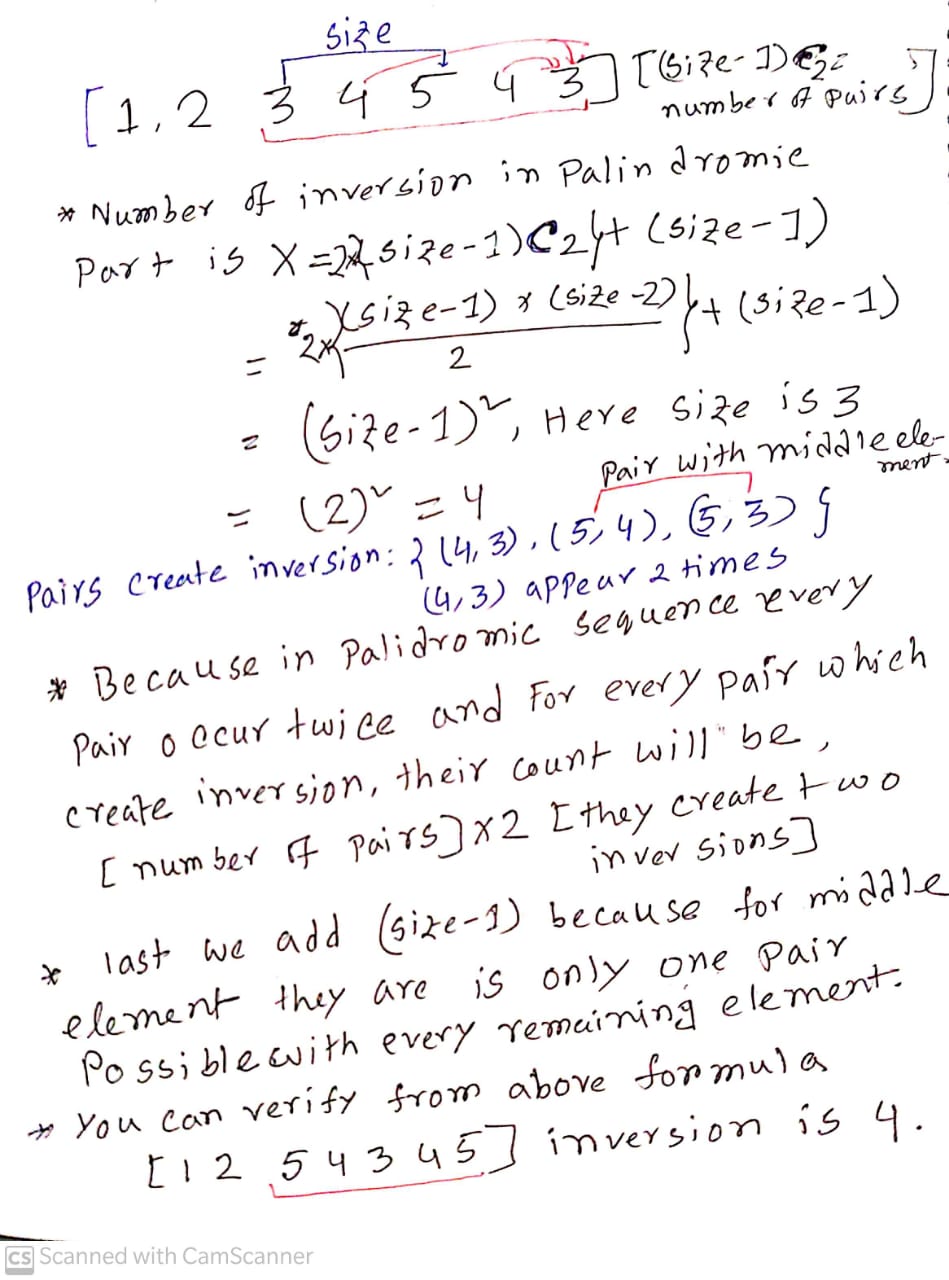 size
[1, 2 3 4 5 4 3] [(size-1)C2 =
number of pairs]
* Number of inversion in Palin dromic
Part is X = 2*{size-1)C2}+ (size-1)
= 2*{(size-1) * (size-2)/2}+ (size-1)
= (size-1)², Here size is 3
= (2)² = 4
Pair with middle ele-
ment.
Pairs create inversion: { (4,3), (5,4), (5,3) }
(4,3) appear 2 times
* Because in Palidromic sequence every
Pair occur twice and For every pair which
create inversion, their count will be,
[number of pairs]x2 [they create two
inversions]
* last we add (size-1) because for middle
element they are is only one pair
Possible with every remaining element.
* You can verify from above formula
[1 2 5 4 3 4 5] inversion is 4.
CS Scanned with CamScanner